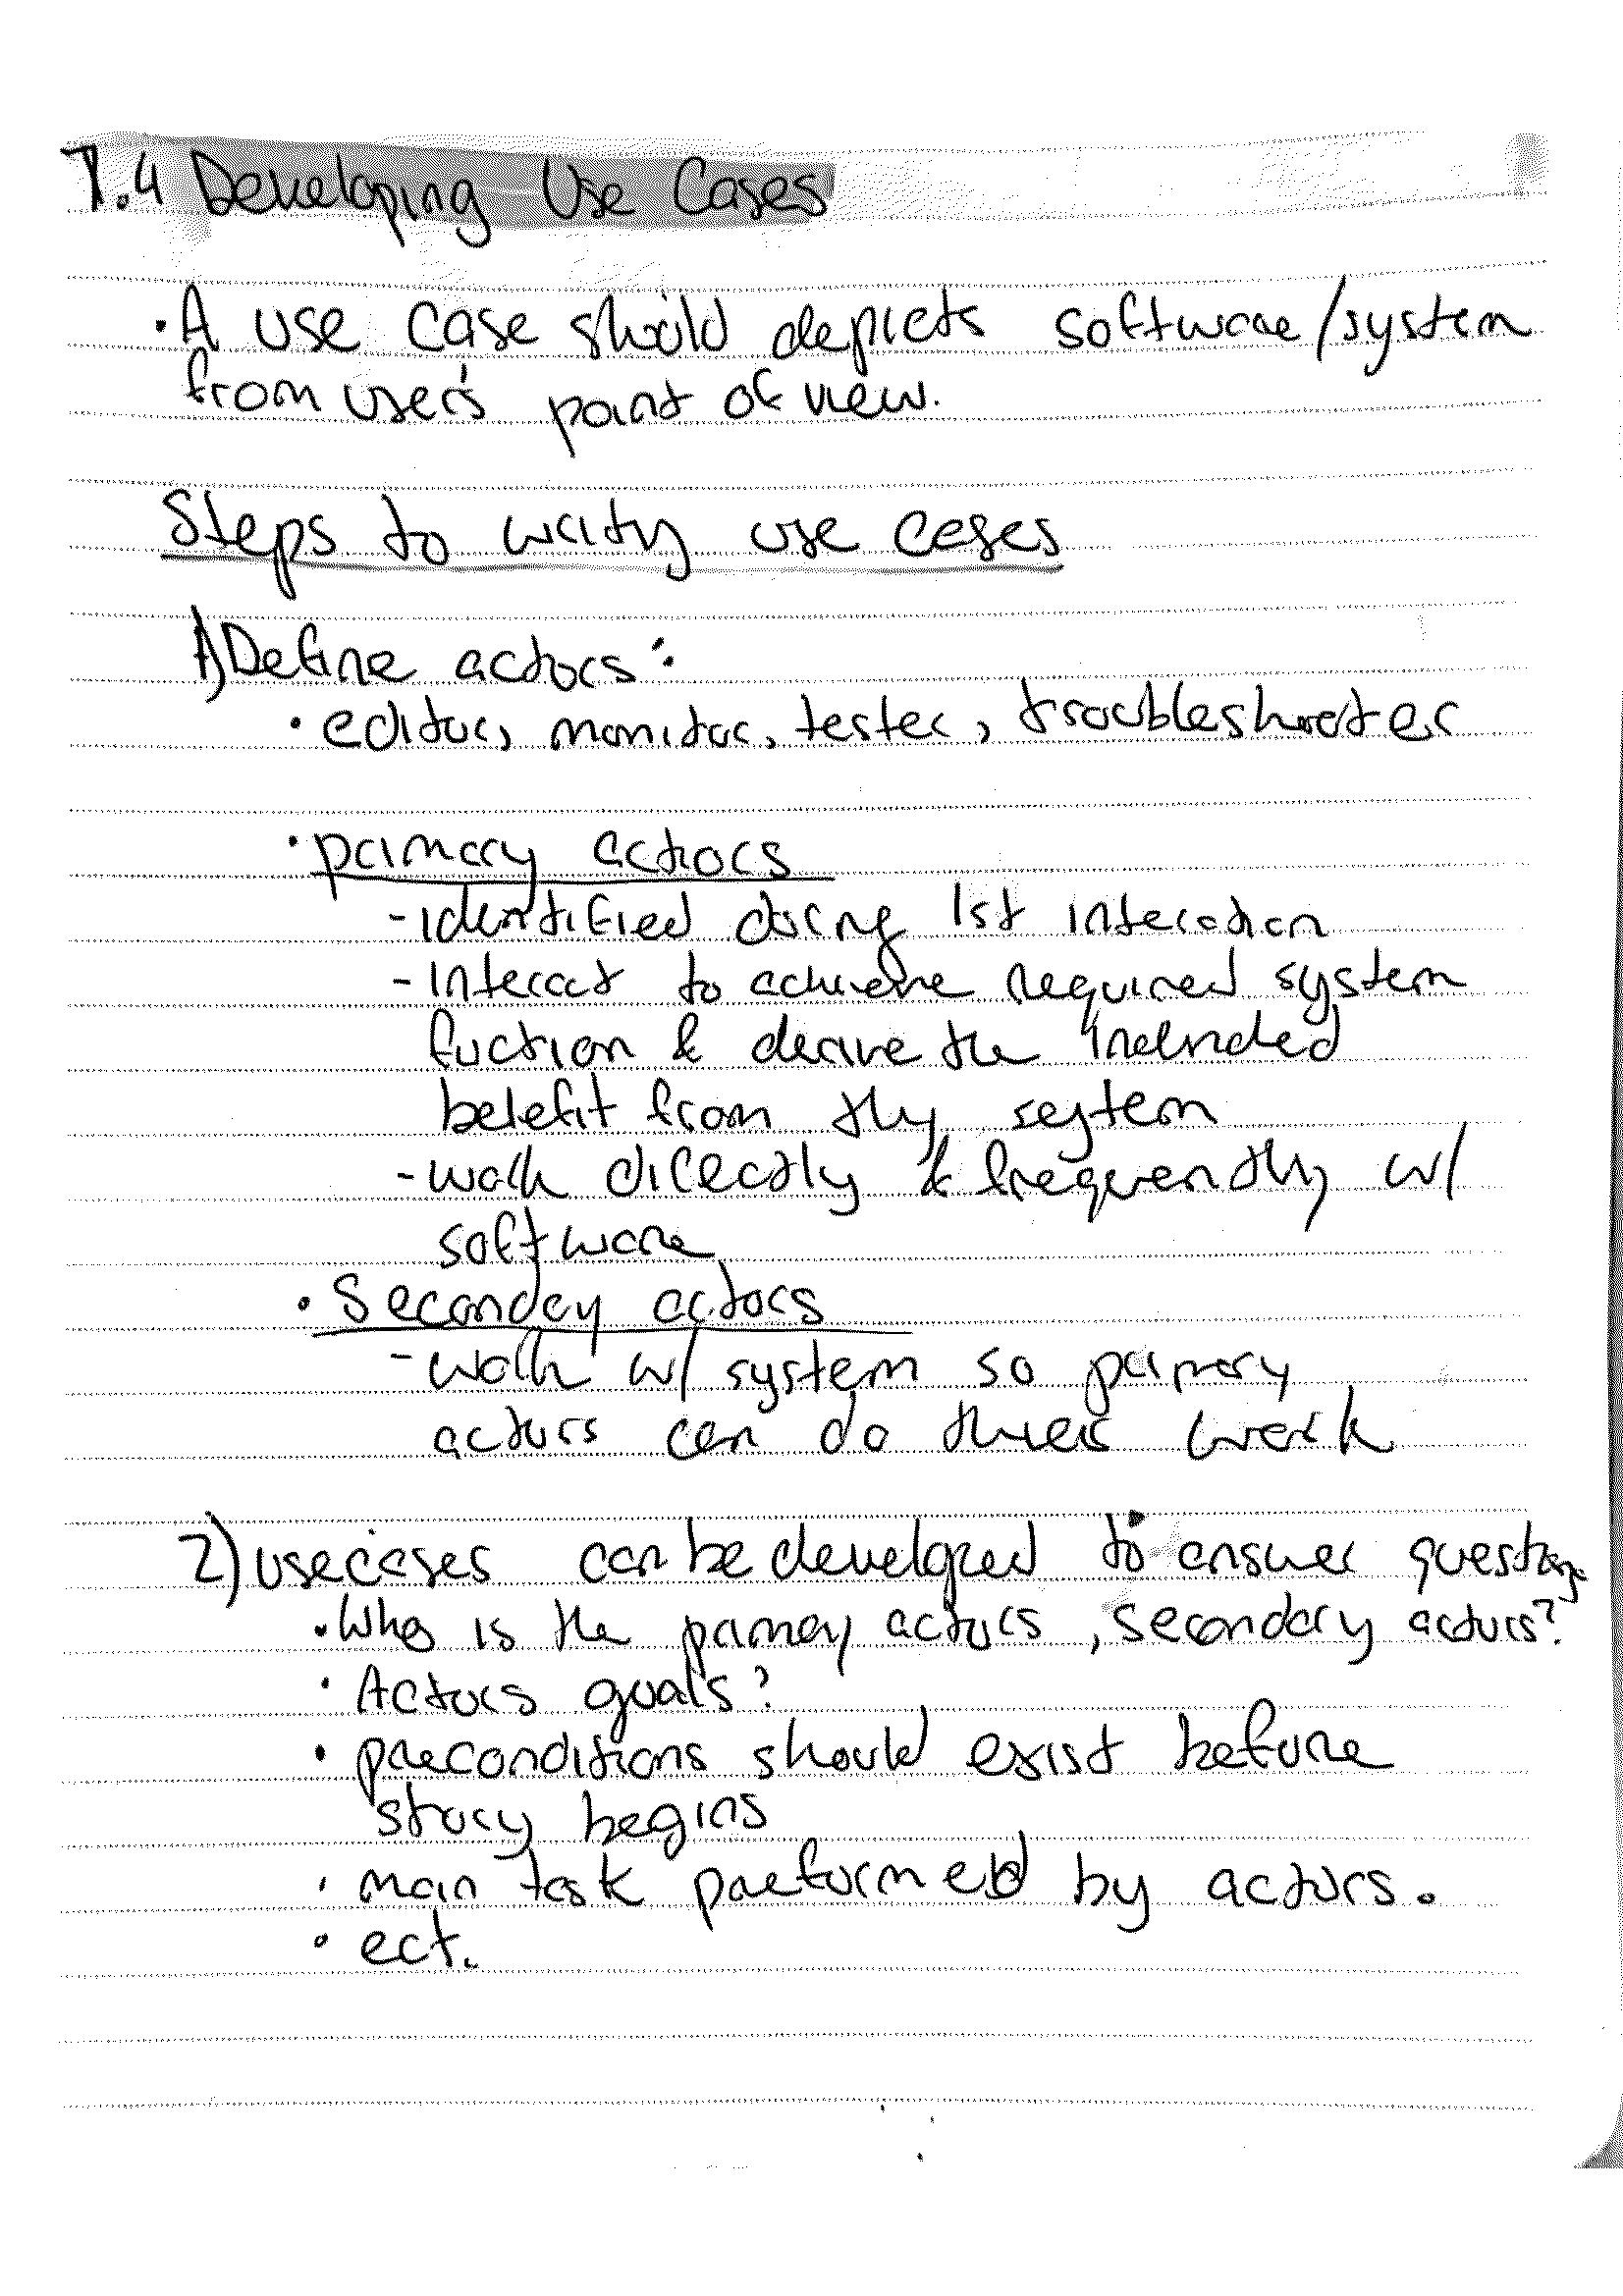 7.4 Developing Use Cases
• A use case should depicts software/system
from user's point of view.
Steps to writy use cases
1) Define actors:
• editor, monitor, tester, troubleshooter
• primary actors
- identified during 1st interation
- interact to achieve required system
fuction & derive the
belefit from thy seytem
- work directly & frequently w/
software
• Secondey actors
- work w/ system so primary
actors can do thier work
2) use cases can be developed to answer
• Who is the primary actors, secondary actors?
• Actors goals?
• preconditions should exist before
story begins
• main task preformed by actors.
• ect.